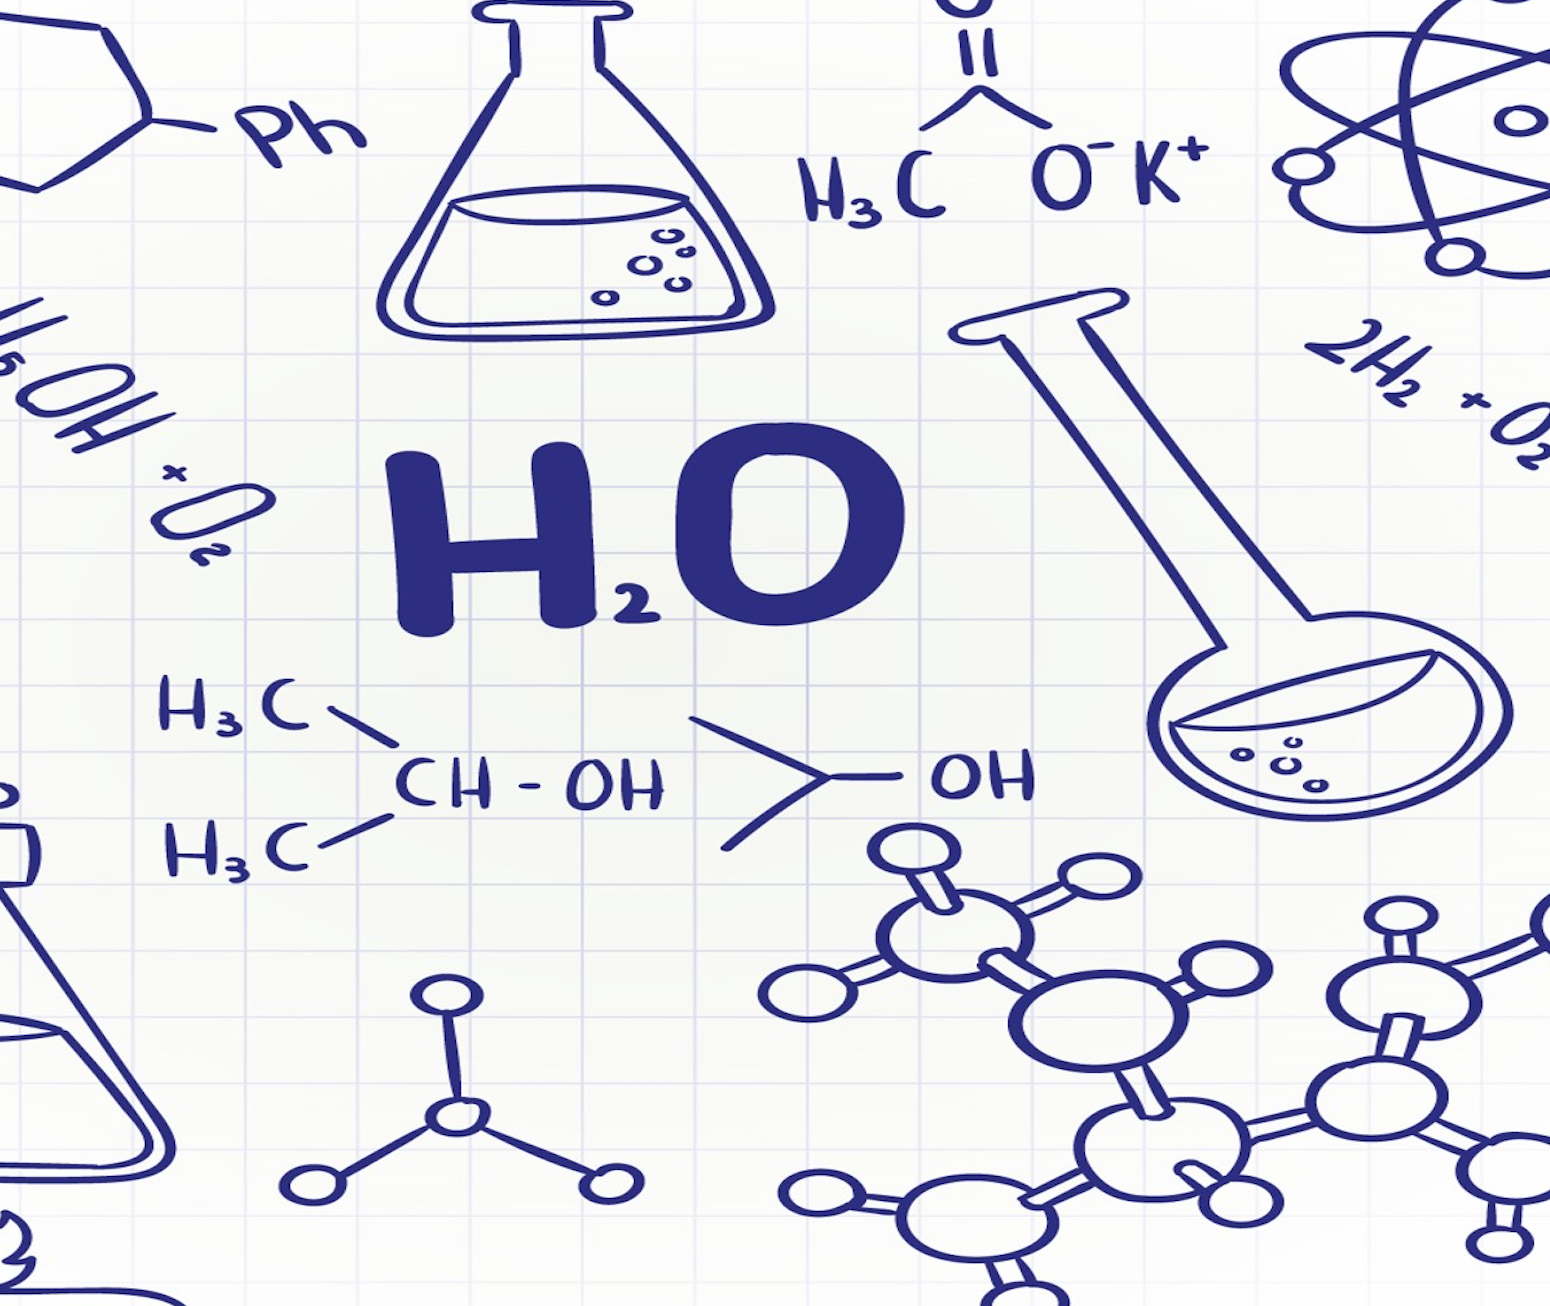 Ph
O
H₃C O⁻ K⁺
H₅OH + O₂
2H₂ + O₂
H₂O
H₃C
CH - OH
H₃C
OH